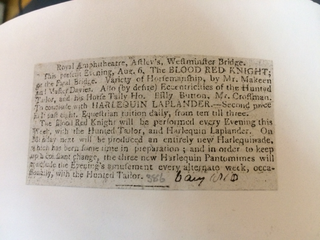 Royal Amphitheatre, Astley's, Westminster Bridge.
This present Evening, Aug. 6, The BLOOD RED KNIGHT;
or the Fatal Bridge. Variety of Horsemanship, by Mr. Makeen
and Master Davies. Also (by desire) Eccentricities of the Hunted
Tailor, and his Horse Tally Ho. Billy Button, Mr. Crossman.
To conclude with HARLEQUIN LAPLANDER.—Second price
at half past eight. Equestrian tuition daily, from ten till three.
The Blood Red Knight will be performed every Evening this
Week, with the Hunted Tailor, and Harlequin Laplander. On
Monday next will be produced an entirely new Harlequinade,
which has been some time in preparation; and in order to keep
up a constant change, the three new Harlequin Pantomimes will
conclude the Evening's amusement every alternate week, occa-
sionally, with the Hunted Tailor.